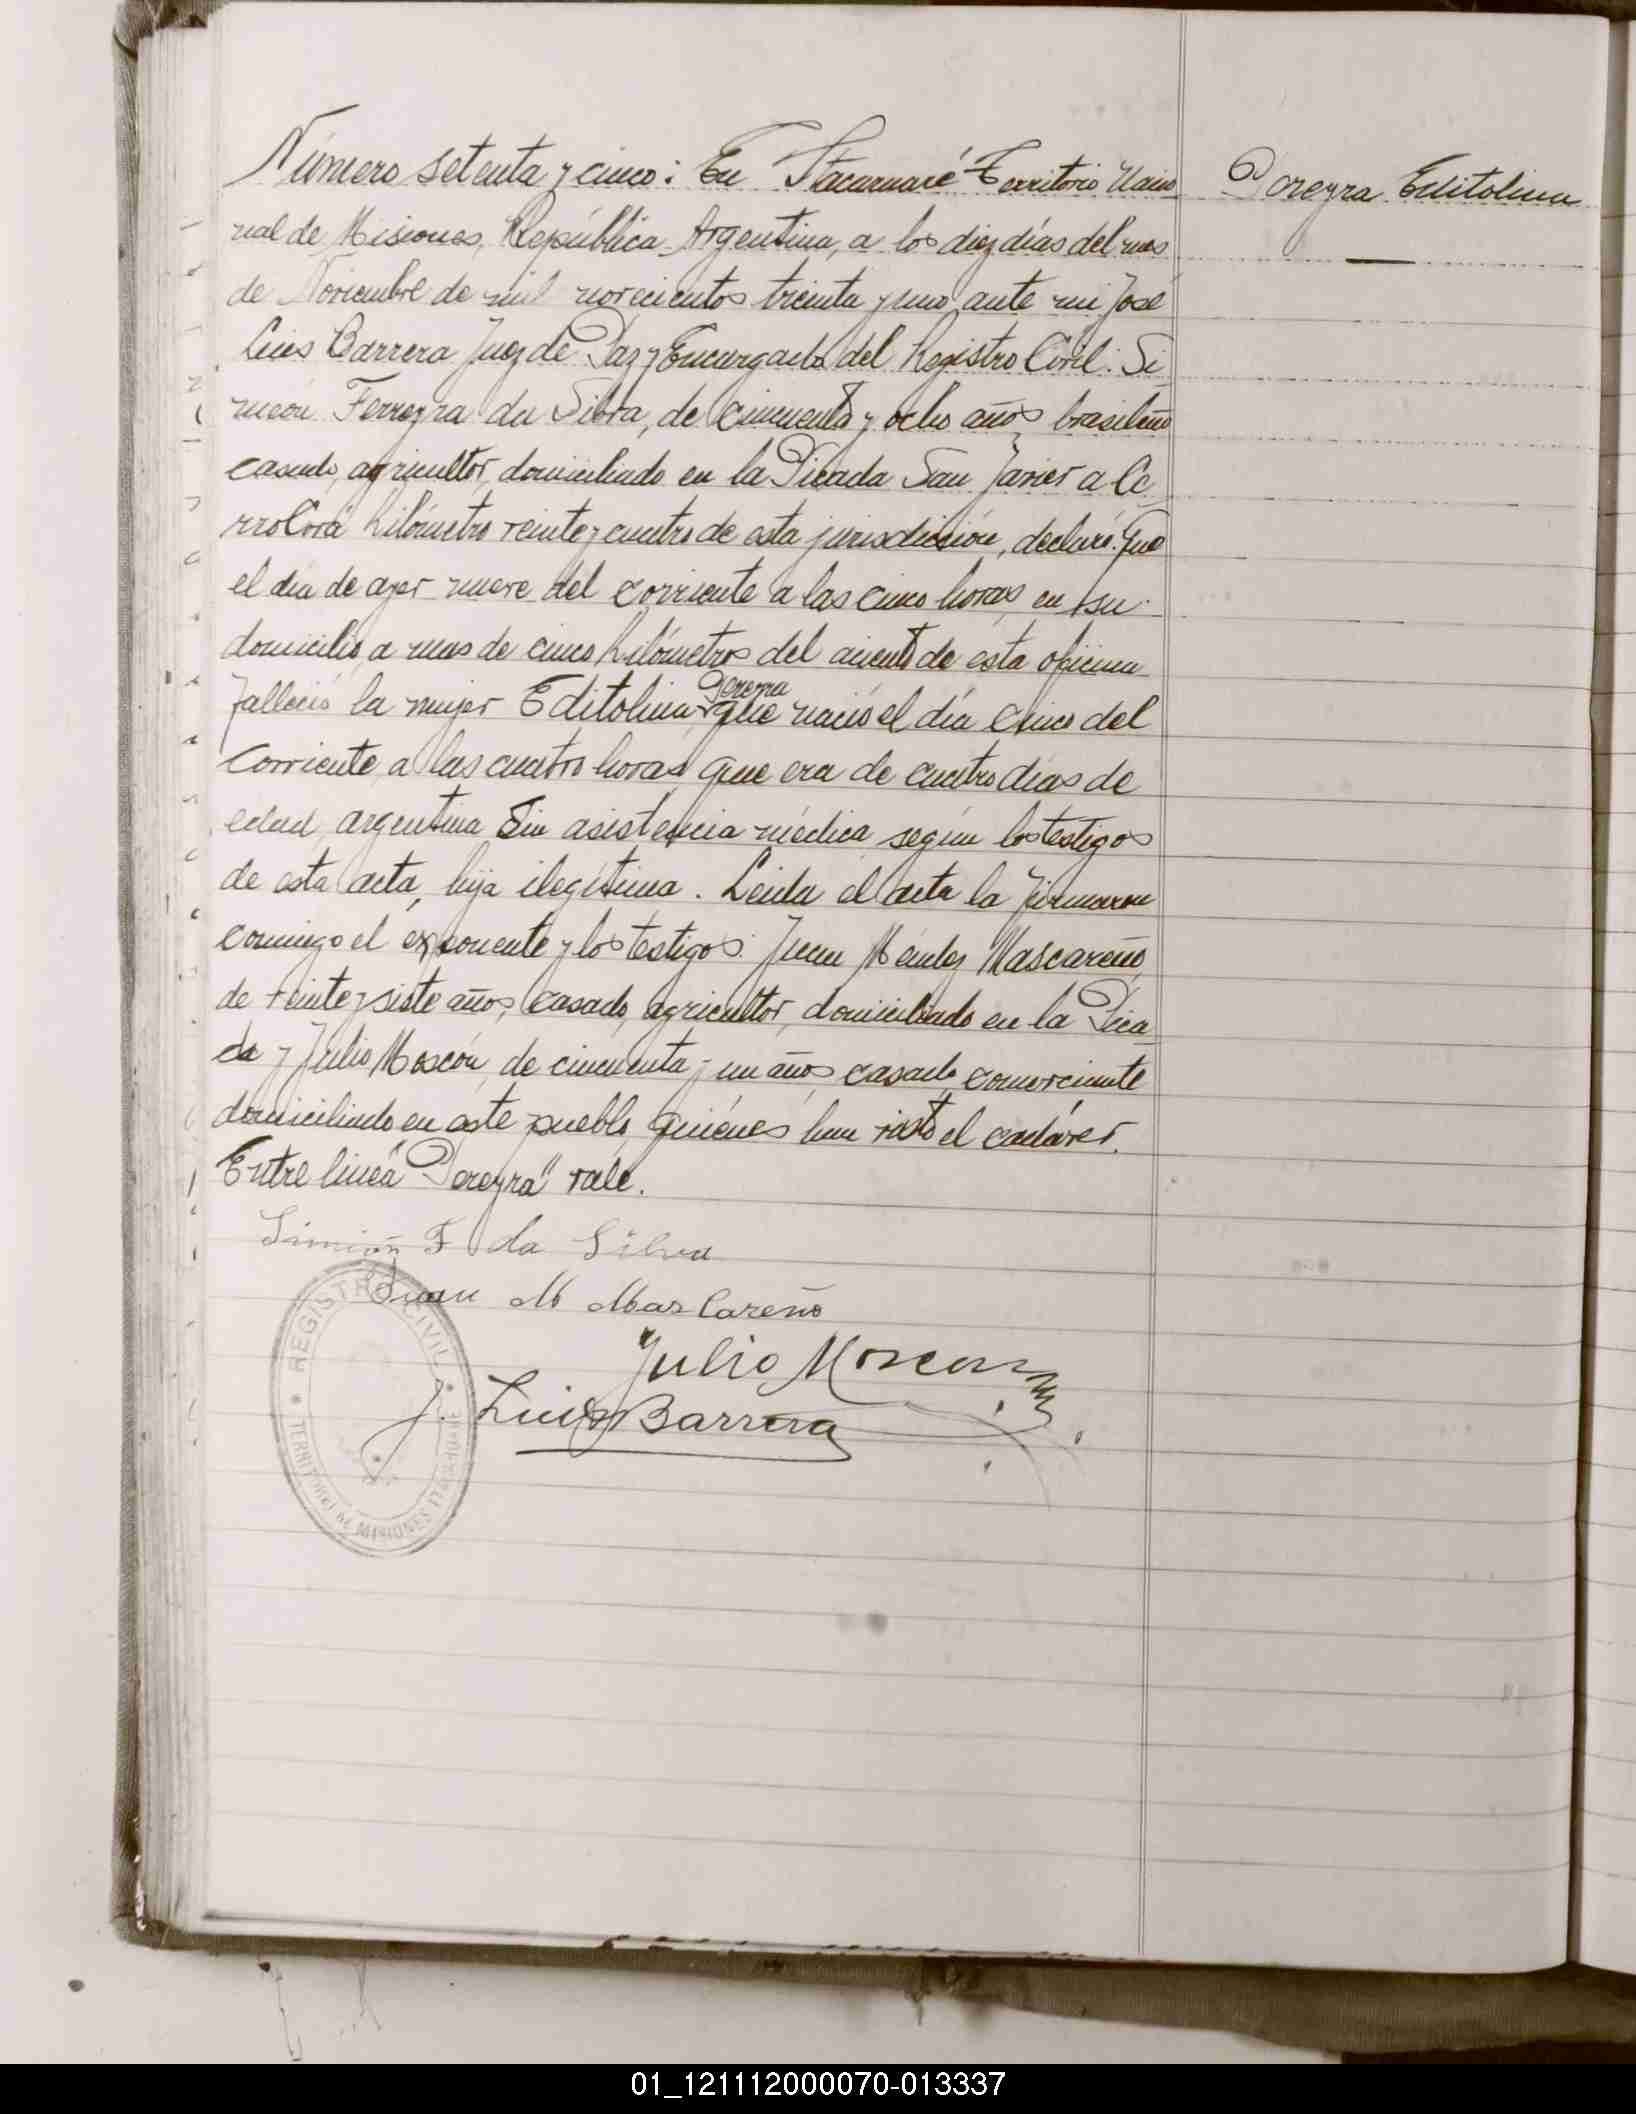 Número setenta y cinco: En Itacaruaré Territorio Nacio
nal de Misiones, República Argentina, a los diez días del mes
de Noviembre de mil novecientos treinta y uno, ante mi José
Luis Barrera Juez de Paz y Encargado del Registro Civil: Si
meón Ferreyra da Silva, de cincuenta y ocho años, brasileño
casado, agricultor, domiciliado en la Picada San Javier a Ce
rro Corá kilómetro veinte y cuatro de esta jurisdicción, declaró: Que
el día de ayer nueve del corriente a las cinco horas, en su
domicilio, a mas de cinco kilómetros del asiento de esta oficina
Pereyra
falleció la mujer Editolina, que nació el día cinco del
corriente, a las cuatro horas, que era de cuatro días de
edad, argentina, Sin asistencia médica, según los testigos
de esta acta, hija ilegítima. Leida el acta la firmaron
conmigo el exponente y los testigos: Juan Méndez Mascareño,
de veinte y siete años, casado, agricultor, domiciliado en la Pica
da y Julio Moscón, de cincuenta y un años, casado, comerciante
domiciliado en este pueblo, quiénes han visto el cadáver.
Entre linea "Pereyra" vale.
Simión F da Silva
Juan M Mascareño
Julio Moscon
J. Luis Barrera
REGISTRO CIVIL
TERRITORIO DE MISIONES ITACARUARE
Pereyra Editolina
01_121112000070-013337